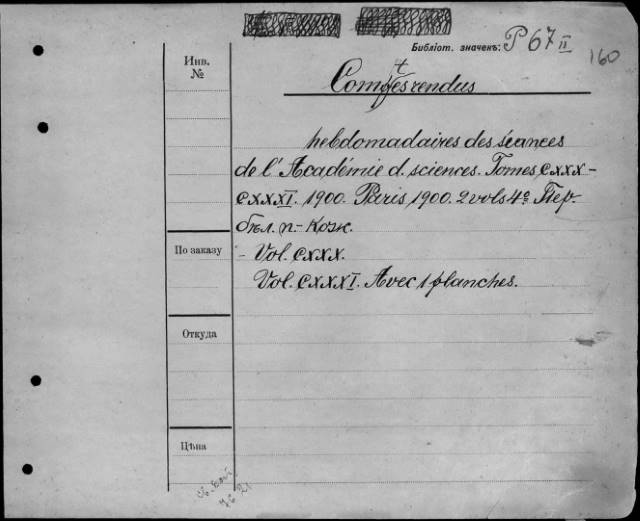 Библіот. значекъ: P 67 II
160
Инв.
№
Comptes rendus
hebdomadaires des séances
de l'Académie d. sciences. Tomes CXXX-
CXXXI. 1900. Paris, 1900. 2 vols 4º. Пер.
бѣл. п.-кож.
По заказу
- Vol. CXXX.
Vol. CXXXI. Avec 1 planches.
Откуда
Цѣна